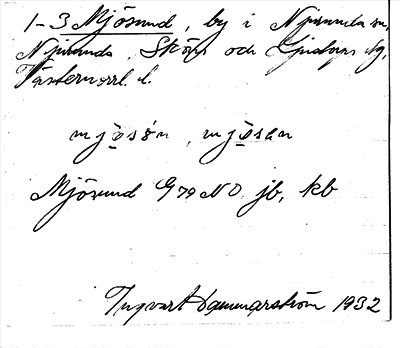 1-3 Mjösund, by i Njurunda sn,
Njurunda, Sköns och Ljustorps tg,
Västernorrl. l.
mjösøn, mjösen
Mjösund G 79 NO. jb, kb
Ingvar Hammarström 1932